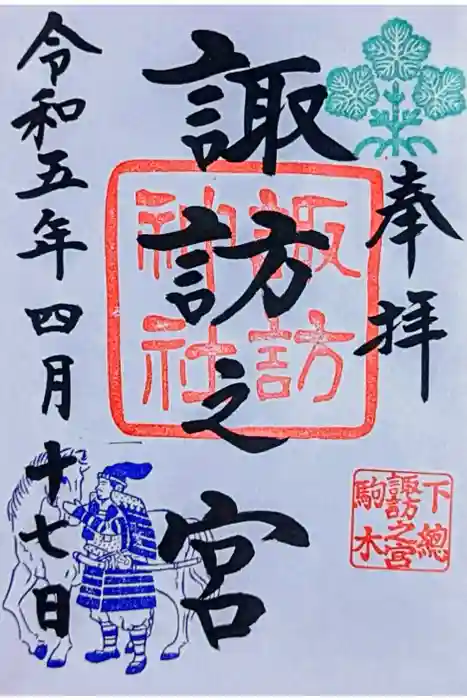 奉拝
諏訪之宮
諏訪
神社
下總
諏訪之宮
駒木
令和五年四月十七日